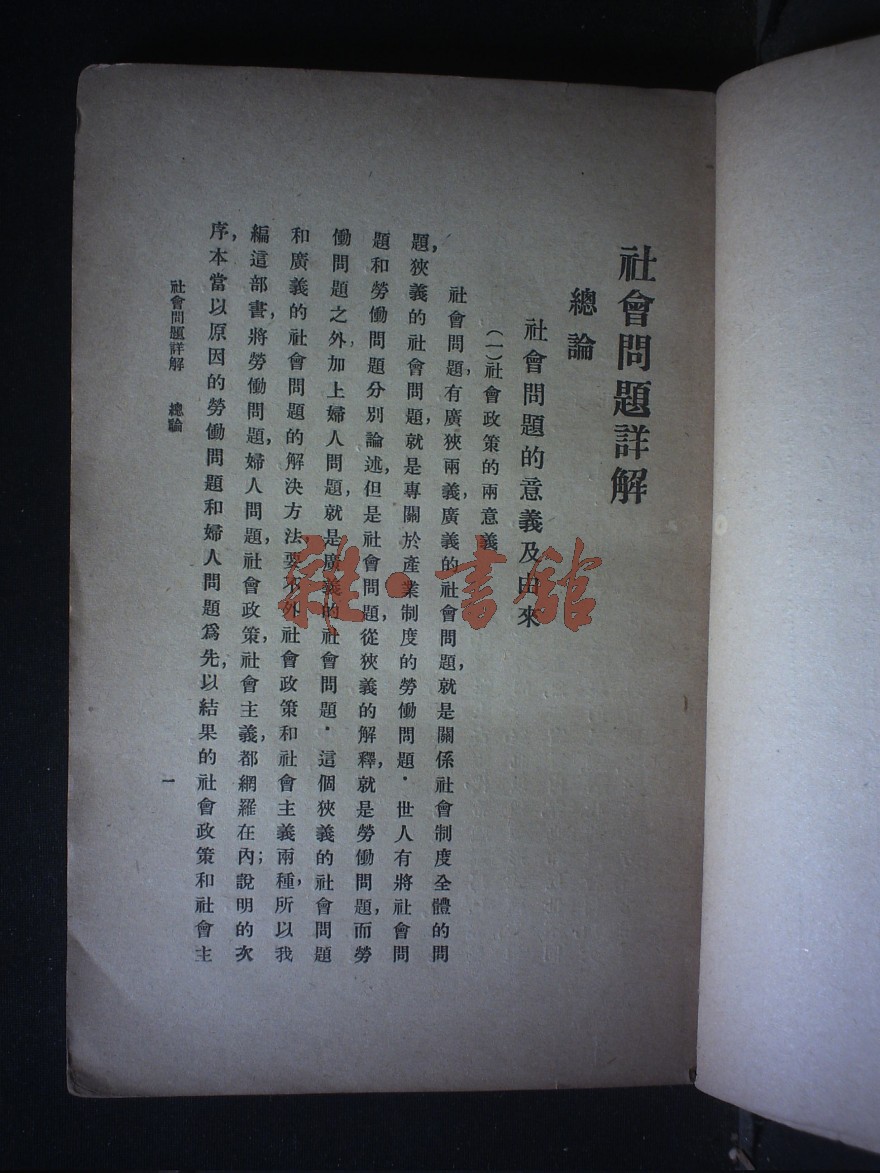 社會問題詳解
總論
社會問題的意義及由來
(一)社會政策的兩意義
社會問題，有廣狹兩義，廣義的社會問題，就是關係社會制度全體的問
題，狹義的社會問題，就是專關於產業制度的勞働問題．世人有將社會問
題和勞働問題分別論述，但是社會問題，從狹義的解釋，就是勞働問題，而勞
働問題之外，加上婦人問題，就是廣義的社會問題．這個狹義的社會問題
和廣義的社會問題的解決方法要不外社會政策和社會主義兩種，所以我
編這部書，將勞働問題，婦人問題，社會政策，社會主義，都網羅在內；說明的次
序，本當以原因的勞働問題和婦人問題爲先，以結果的社會政策和社會主
社會問題詳解 總論
一
雜·書館